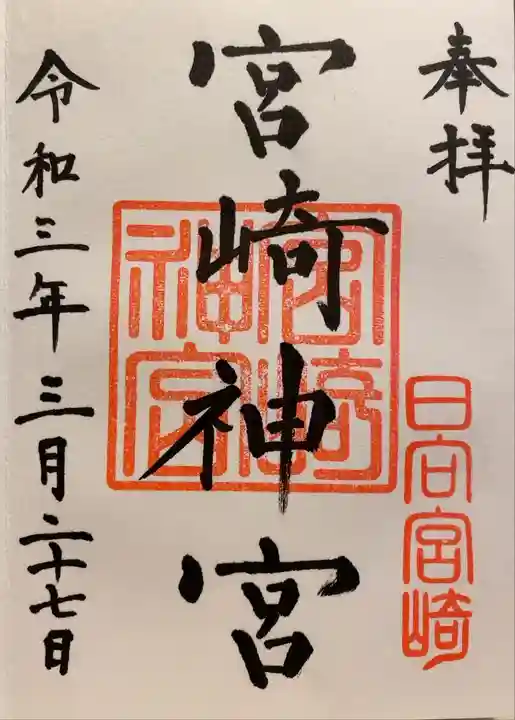 奉拝
日向宮崎
宮崎神宮
宮崎神宮
令和三年三月二十七日